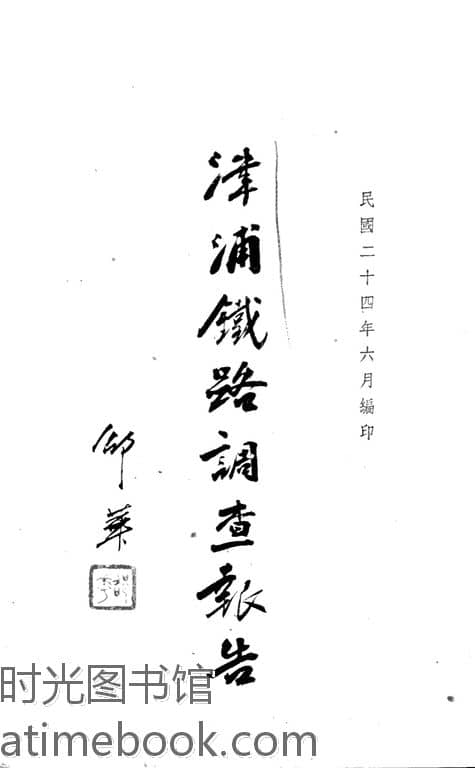 民國二十四年六月編印
津浦鐵路調查報告
邱華
时光图书馆
atimebook.com